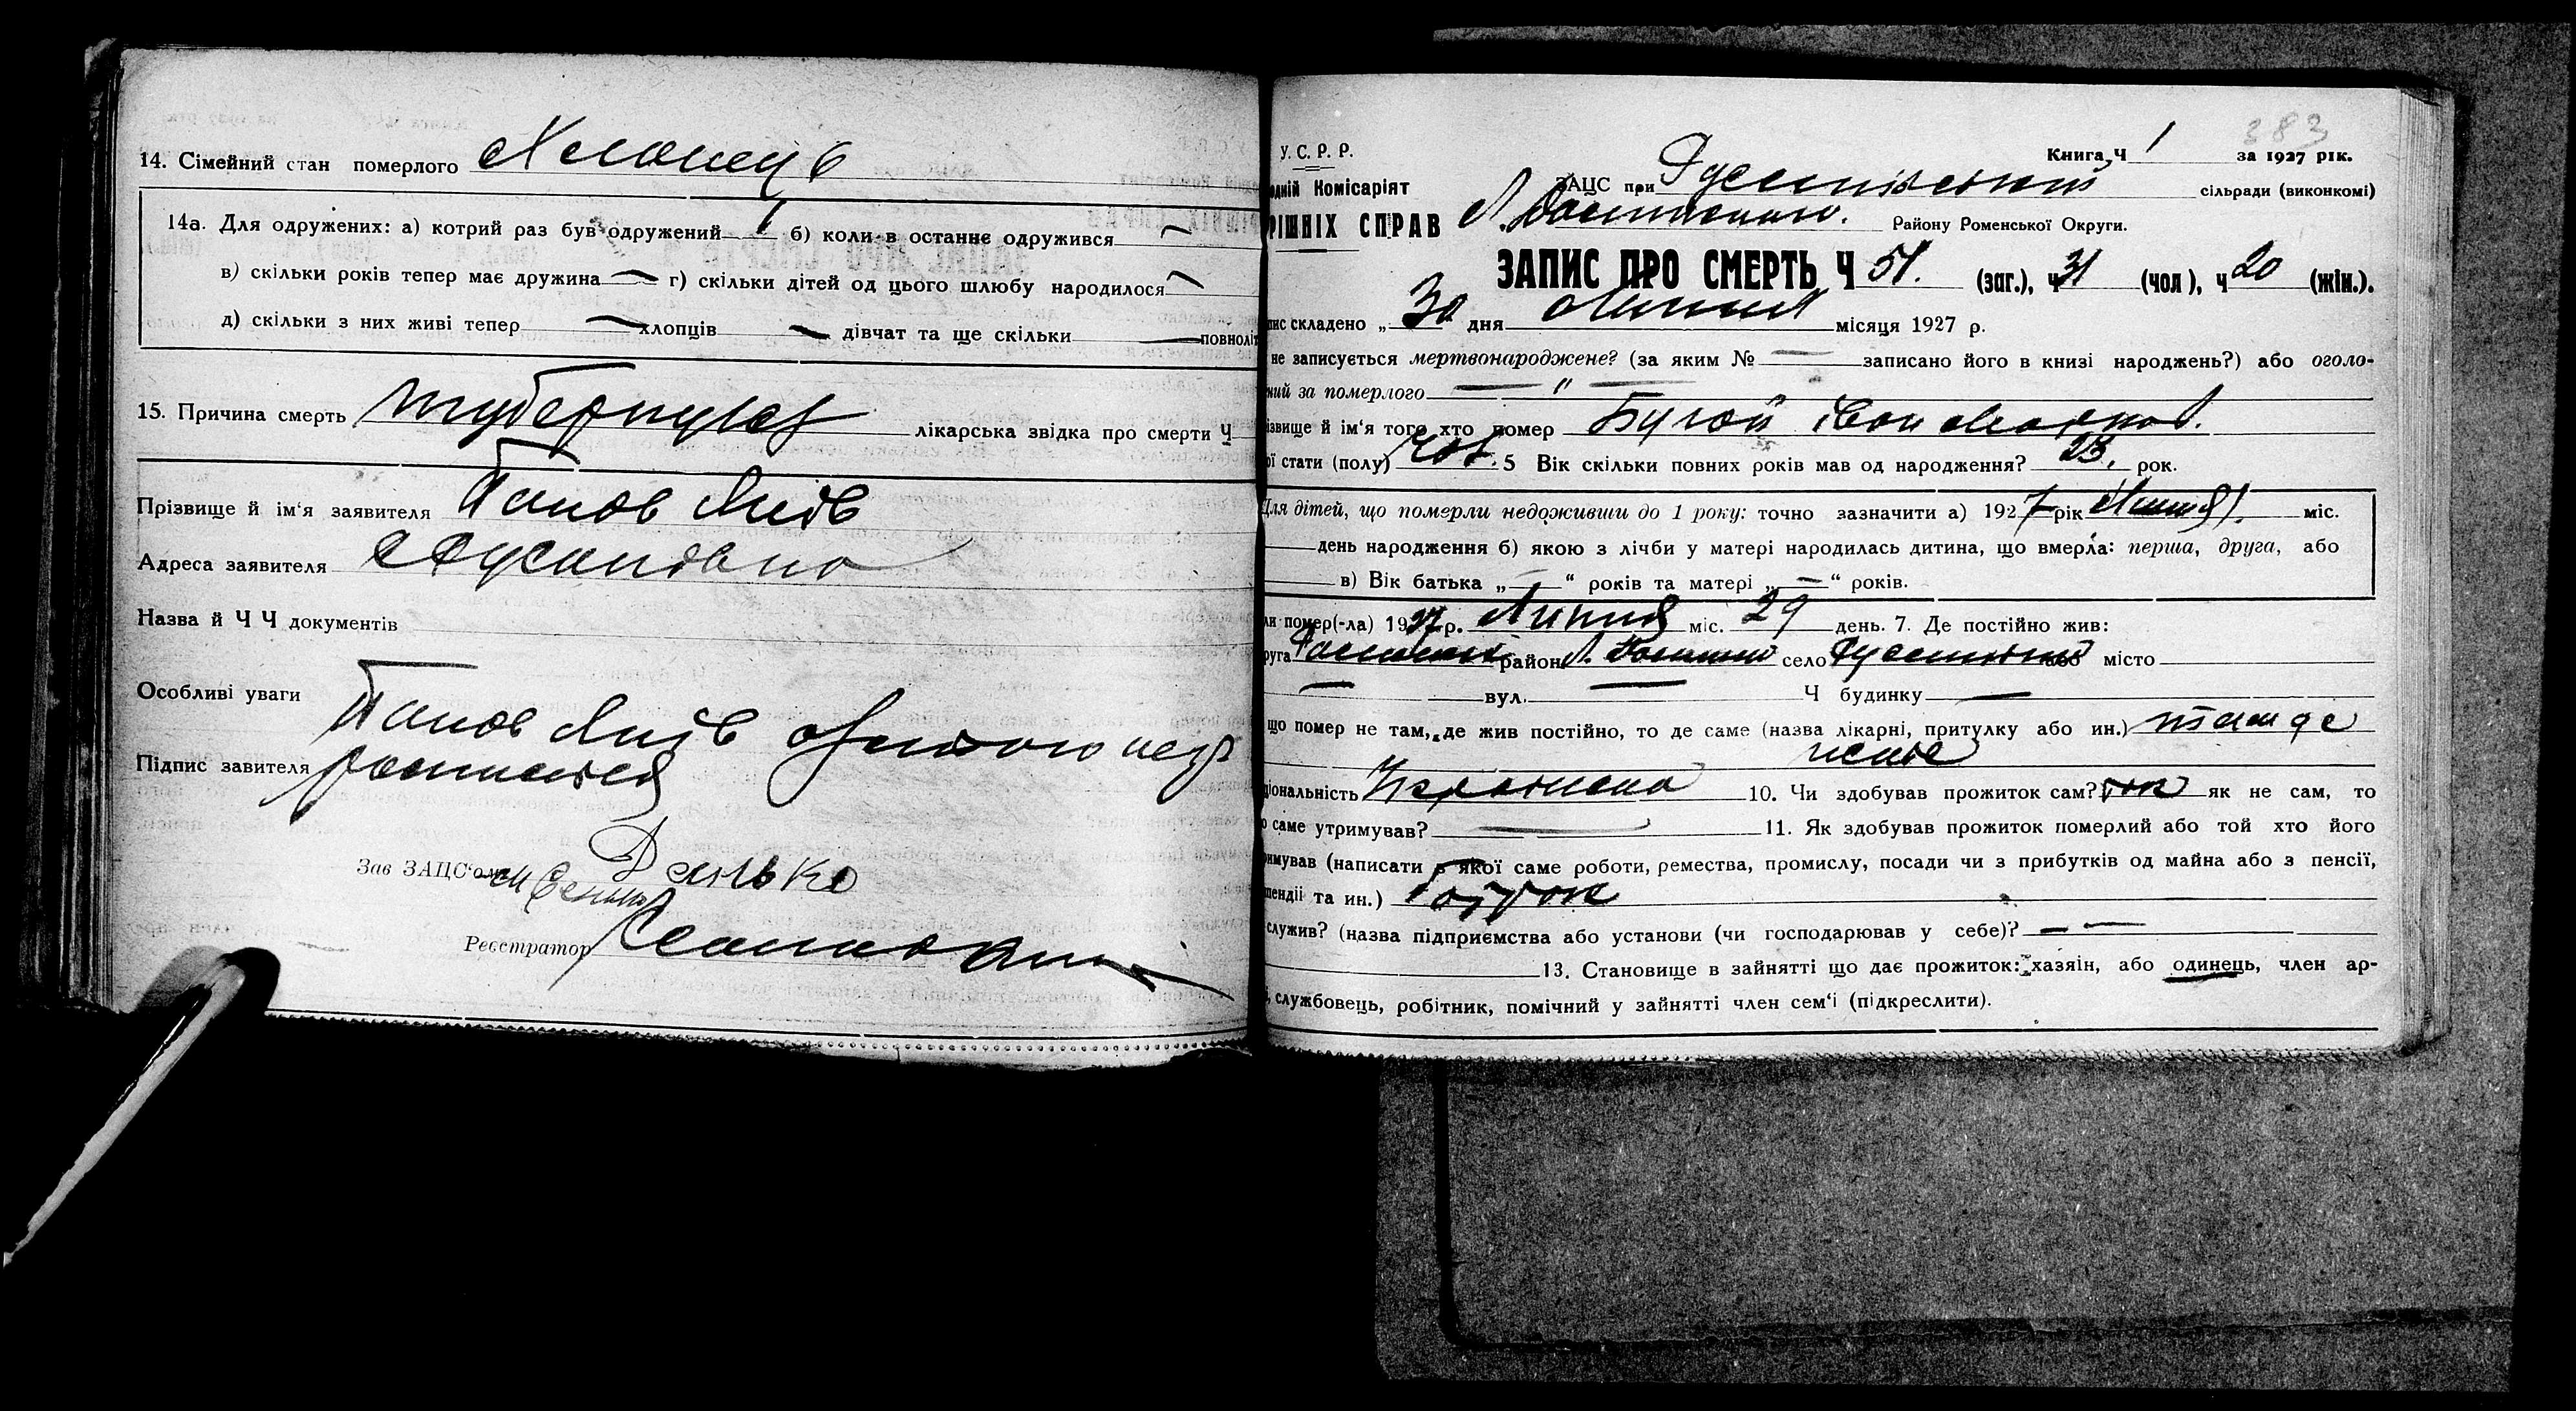 14. Сімейний стан померлого Хлопець
14а. Для одружених: а) котрий раз був одружений б) коли в останнє одружився —
в) скільки років тепер має дружина — г) скільки дітей од цього шлюбу народилося —
д) скільки з них живі тепер — хлопців — дівчат та ще скільки — повноліт
15. Причина смерть туберкульоз лікарська звідка про смерти Ч
Прізвище й ім'я заявителя Панов Яків
Адреса заявителя
Назва й Ч Ч документів
Особливі уваги
Панов Яків
Підпис завителя
Зав ЗАЦС'ом Данько
Реєстратор
383
У. С. Р. Р. Книга Ч 1 за 1927 рік.
одній Комісаріят ЗАЦС при сільради (виконкомі)
РІШНІХ СПРАВ Району Роменської Округи.
ЗАПИС ПРО СМЕРТЬ Ч 51. (заг.), ч 31 (чол), ч 20 (жін.).
пис складено „ 30 дня Липня місяця 1927 р.
не записується мертвонароджене? (за яким № — записано його в книзі народжень?) або оголо-
ний за померлого — " —
ізвище й ім'я того хто помер Бугай Іван
ої стати (полу) чол. 5 Вік скільки повних років мав од народження? 23. рок.
Для дітей, що померли недоживши до 1 року: точно зазначити а) 1927 рік Липня міс.
день народження б) якою з лічби у матері народилась дитина, що вмерла: перша, друга, або
в) Вік батька „ — " років та матері „ — " років.
ли помер(-ла) 1927 р. Липня міс. 29 день. 7. Де постійно жив:
руга район село або місто
— вул. — Ч будинку —
що помер не там, де жив постійно, то де саме (назва лікарні, притулку або ин.) там де
живе
ціональність 10. Чи здобував прожиток сам? так як не сам, то
о саме утримував? — 11. Як здобував прожиток померлий або той хто його
римував (написати з якої саме роботи, ремества, промислу, посади чи з прибутків од майна або з пенсії,
пендії та ин.)
служив? (назва підприємства або установи (чи господарював у себе)? — —
13. Становище в зайнятті що дає прожиток: хазяін, або одинець, член ар-
, службовець, робітник, помічний у зайнятті член сем'і (підкреслити).